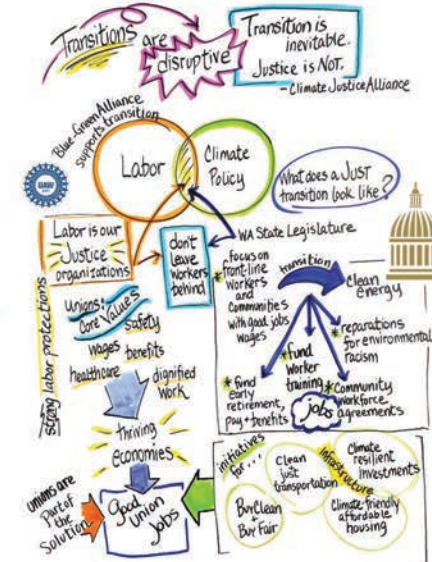 Transitions are
disruptive
Transition is
inevitable.
Justice is NOT.
- Climate Justice Alliance
Blue-Green Alliance
supports transition
Labor
Climate
Policy
What does a JUST
transition look like?
UAW
Labor is our
Justice
organizations
don't
leave
workers
behind
WA State Legislature
strong labor protections
Unions:
Core Values
safety
wages benefits
healthcare dignified
work
thriving
economies
unions are
Part of
the
Solution
Good
Union
Jobs
* Focus on
front-line
workers
and
communities
with good jobs
wages
transition
Clean
energy
* reparations
for environmental
racism
* fund
worker
training
* Community
workforce
agreements
* fund
early
retirement,
pay + benefits
jobs
initiatives
for...
Clean
just
transportation
Infrastructure
Climate
resilient
investments
Buy Clean
+
Buy Fair
Climate friendly
affordable
housing